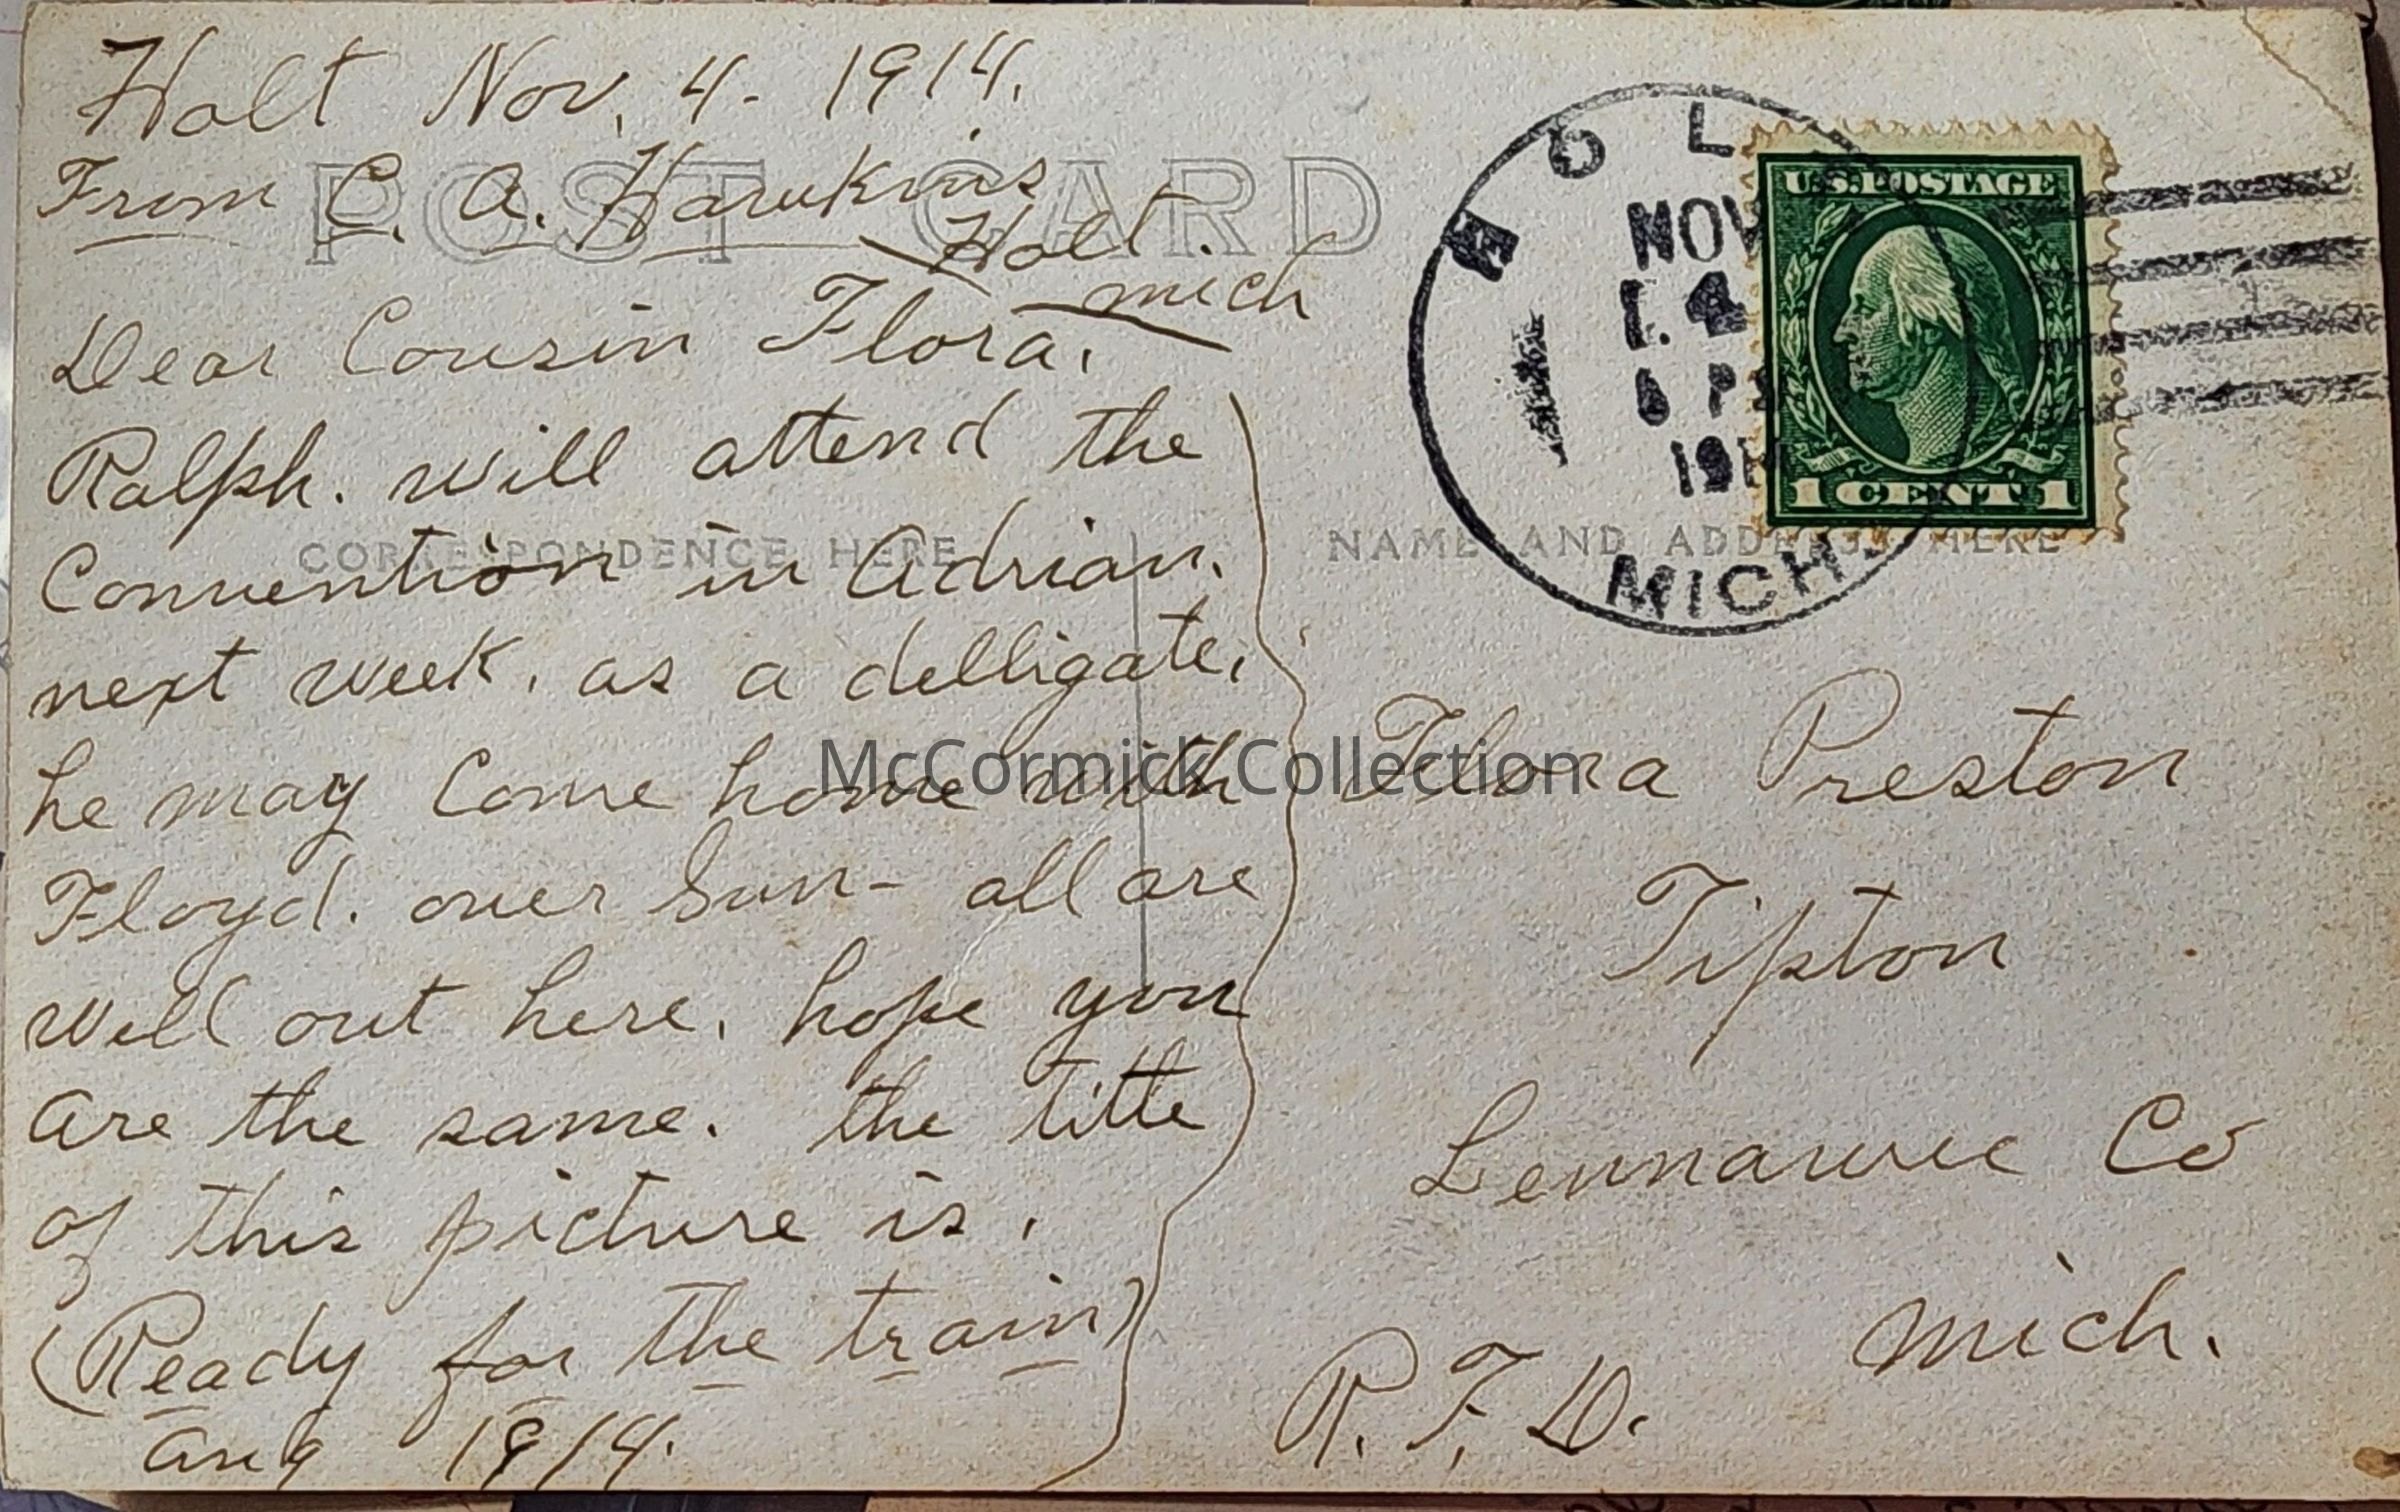 Holt Nov. 4 - 1914.
From C. A. Hawkins
Holt.
Mich
POST CARD
Dear Cousin Flora.
Ralph. will attend the
Convention in Adrian.
next week. as a delligate.
he may Come home with
Floyd. over Sun - all are
well out here. hope you
are the same. the title
of this picture is.
(Ready for the train)
Aug 1914.
CORRESPONDENCE HERE
NAME AND ADDRESS HERE
HOL
NOV
4
191
MICH.
U.S. POSTAGE
1 CENT 1
Flora Preston
Tipton
Lennawee Co
Mich.
R. F. D.
McCormick Collection